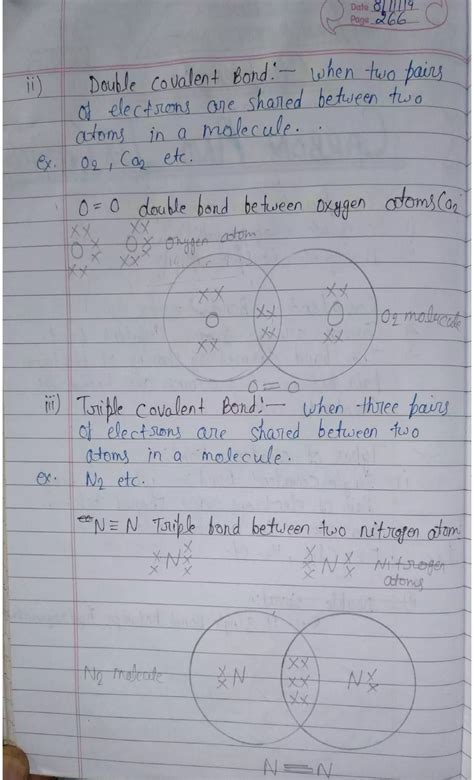 Date 8/11/19
Page 266
ii) Double Covalent Bond:— when two pairs
of electrons are shared between two
atoms in a molecule.
ex. O2, Co2 etc.
O=O double bond between oxygen atoms(O2
xx xx
O x O x oxygen atom
xx xx
xx xx xx
O O O2 molecule
xx xx xx
O=O
iii) Triple Covalent Bond:— when three pairs
of electrons are shared between two
atoms in a molecule.
ex. N2 etc.
N≡N Triple bond between two nitrogen atom
x x x x
x N x x N x Nitrogen
atoms
N2 molecule
x N xx N x
x xx x
xx
N=N